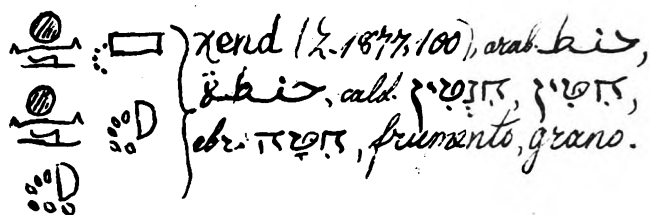 χend (Z. 1877, 100), arab. حنط,
حنطة, cald. חִנְטִין, חִטִין,
ebr. חִטָּה, frumento, grano.